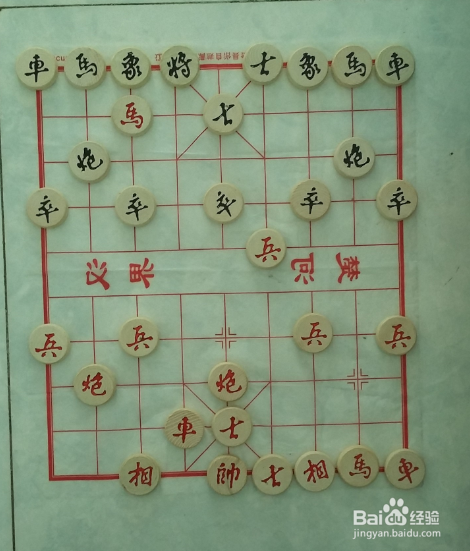 車 馬 象 将 士 象 馬 車
馬 士
炮 炮
卒 卒 卒 卒 卒
兵
汉界 河楚
兵 兵 兵 兵
炮 炮
車 士
相 帥 士 相 馬 車
Bai du 经验
jingyan.baidu.com